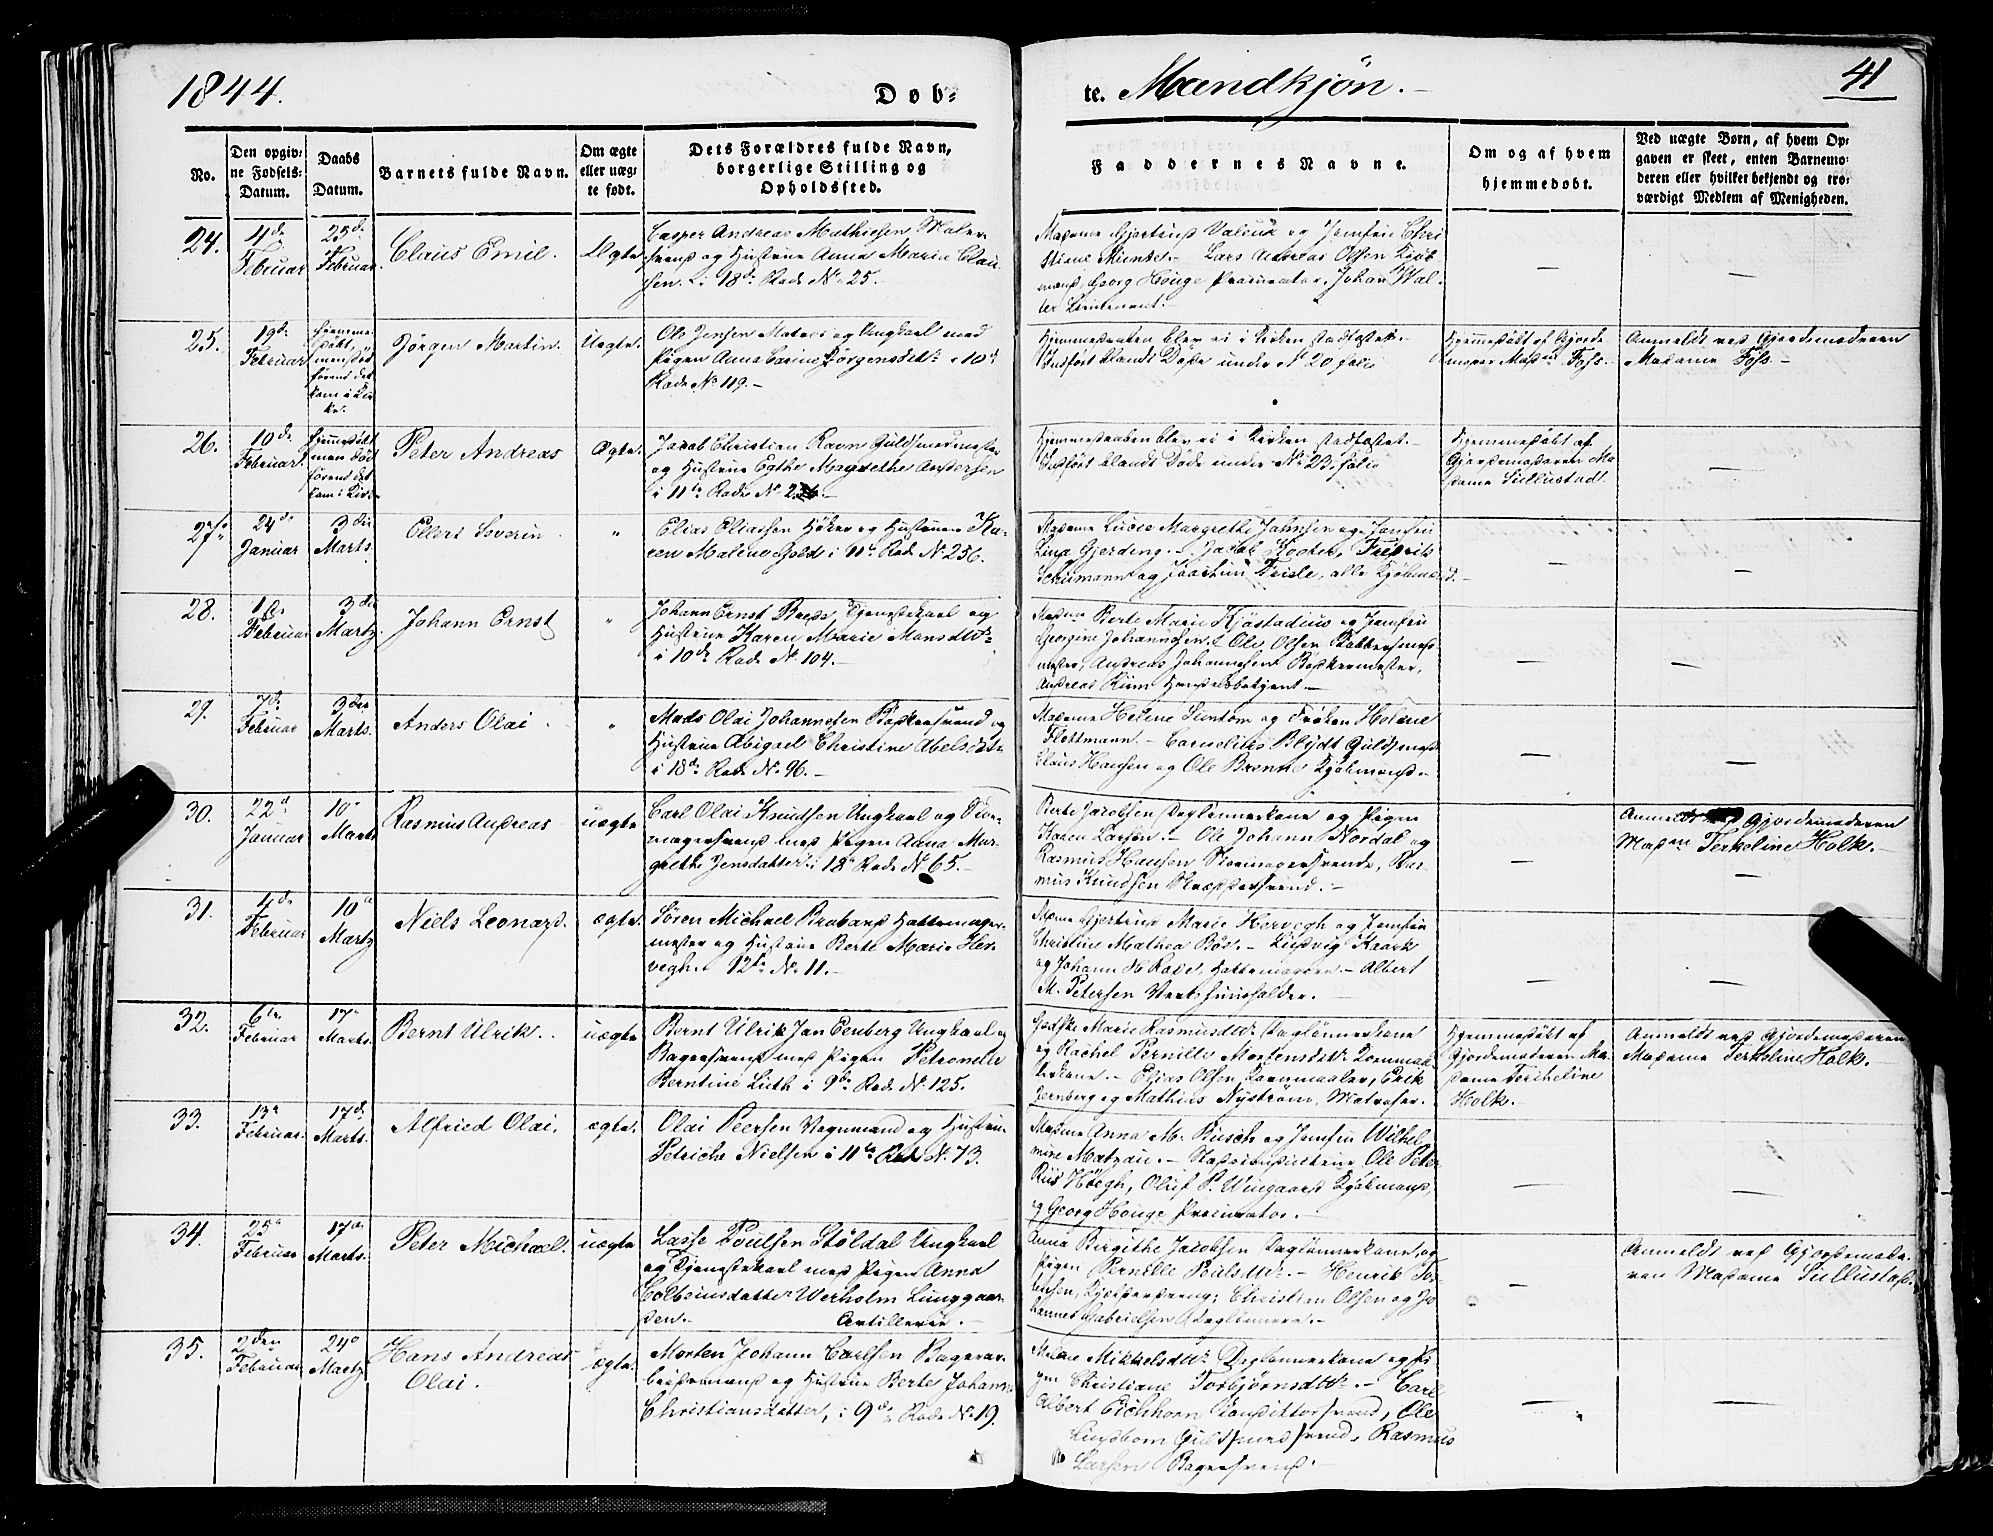 1844.
Døb-
te. Mandkjön.
41
No.
Den opgiv-
ne Fødsels-
Datum.
Daabs
Datum.
Barnets fulde Navn.
Om ægte
eller uæg-
te født.
Dets Forældres fulde Navn,
borgerlige Stilling og
Opholdssted.
Faddernes Navne.
Om og af hvem
hjemmedøbt.
Ved uægte Børn, af hvem Op-
gaven er skeet, enten Barnemo-
deren eller hvilket bekjendt og tro-
værdigt Medlem af Menigheden.
24.
4de
Februar
25de
Februar.
Claus Emil.
Ægte.
Casper Andreas Mathiesen Maler
svend og Hustrue Anna Maria Clau
sen. i 18de Rode No 25.
Madame Gjertrud Valeur og Jomfru Chri
stiane Münter. Lars Andreas Olsen Kjöb
mand, Georg Houge Procurator, Johan Wal-
der Lieutenant.
25.
19de
Februar
hjemme
døbt,
men død
förend det
kom i Kir
ke.
Jörgen Martin.
Uægte.
Ole Jensen Matros og Ungkarl med
Pigen Anne Jörgensdtr i 10de
Rode No 119.
Hjemmedaaben blev ei i Kirken stadfæstet.
Indfört blandt Døde under No 20 folio
Hjemmedøbt af Gjorde
moder Madme Foss.
Anmeldt ved Gjordemoderen
Madame Foss.
26.
10de
Februar.
hjemmedøbt
men død
förend det
kom i Kirke
Peter Andreas
Ægte.
Jacob Christian Ravn Guldsmedmester
og Hustrue Margrethe Andersen
i 11te Rode No
Hjemmedaaben blev ei i Kirken stadfæstet.
Indfört blandt Døde under No 23, folio
Hjemmedøbt af
Gjordemoderen Ma
dame Sullustad.
27.
24de
Januar
3die
Marts.
Ellert Severin
"
Elias Eliassen Höker og Hustrue Ka-
ren Malene i 11te Rode No 256.
Madame Lucie Margrethe Jahnsen og Jomfru
Lina Gjerding. Jacob Fredrik
Schumann og Joachim Friele, alle Kjöbmænd.
28.
1ste
Februar
3die
Marts.
Johann Ernst
"
Johann Ernst Tjenestekarl og
Hustrue Karen Marie Monsdtr
i 10de Rode No 104.
Madame Berte Marie og Jomfru
Georgine Johannesen. Ole Olsen
mester, Andreas Johannesen Bødkermester,
Andreas
29.
7de
Februar
3die
Marts.
Anders Olai
"
Mads Olai Johannesen Bødkersvend og
Hustrue Abigael Christine Abelsdtr
i 18de Rode No 96.
Madame Helene og Fröken Helene
Flottmann. Cornelius Blydt Guldsmed
Claus Hansen og Ole Kjöbmænd.
30.
22d
Januar
10de
Marts
Rasmus Andreas
uægte
Carl Olai Knudsen Ungkarl og Skoe-
magersvend med Pigen Anna Mar-
grethe Jensdatter i 18de Rode No 65.
Berte Jacobsen Daglönnerkone og Pigen
Karen Larsen. Ole Johann Nordal og
Rasmus Hansen Skomagersvende, Ras-
mus Knudsen Skræddersvend.
Anmeldt ved Gjordemoderen
Madme Terkeline Holk.
31.
4de
Februar
10de
Marts
Niels Leonard.
ægte.
Sören Michael Hattemager
mester og Hustrue Berte Marie Her-
vegh. 12te No 11.
Madame Gjertrud Marie Hervegh og Jomfru
Christine Mathea Böe. Ludvig
og Johann H Hattemagere. Albert
M. Petersen Vertshuusholder.
32.
6te
Februar
17de
Marts.
Bernt Ulrik.
uægte
Bernt Ulrik Jan Ungkarl og
Bagersvend med Pigen Petronelle
Berntine Lieth i 9de Rode No 125.
Marie Rasmusdtr Daglönnerkone
og Rachel Pernille Mortensdtr
kone. Elias Olsen Kornmaaler, Erik
Jernberg og Mathias Nyström, Matroser.
Hjemmedøbt af
Gjordemoderen Ma-
dame Tercheline
Holk.
Anmeldt ved Gjordemoderen
Madame Terkeline Holk.
33.
13de
Februar.
17de
Marts.
Alfried Olai.
ægte.
Olai Peersen Vognmand og Hustrue
Petriche Nielsen i 11te Rode No 73.
Madame Anna M. Busch og Jomfru Wilhel
mine Matzau. Ole Peter
Riis Höegh, Oluf P. Wingaard Kjöbmænd,
og Georg Houge Procurator.
34.
25de
Februar
17de
Marts.
Peter Michael.
uægte
Lasse Poulsen Stöldal Ungkarl
og Tjenestekarl med Pigen Anna
Colbeinsdatter Werholm Lunggaar-
den. Artilleriet.
Anna Birgithe Jacobsen Daglönnerkone, og
Pigen Pernille Poulsdtr. Henrik To-
biasen, Christian Olsen og Jo
hannes Gabrielsen Daglönnere.
Anmeldt ved Gjordemode-
ren Madame Sullustad.
35.
2den
Februar
24de
Marts
Hans Andreas
Olai.
ægte.
Morten Johann Carlsen Bagerar-
beidsmand og Hustrue Berte Johanne
Christiansdatter, i 9de Rode No 19.
Malene Mikkelsdtr Daglönnerkone og Pi
gen Christiane Torbjörnsdtr. Carl
Albert Eichhorn Conditorsvend, Ole
Lindbom Guldsmedsvend, Rasmus
Larsen Bagersvend.